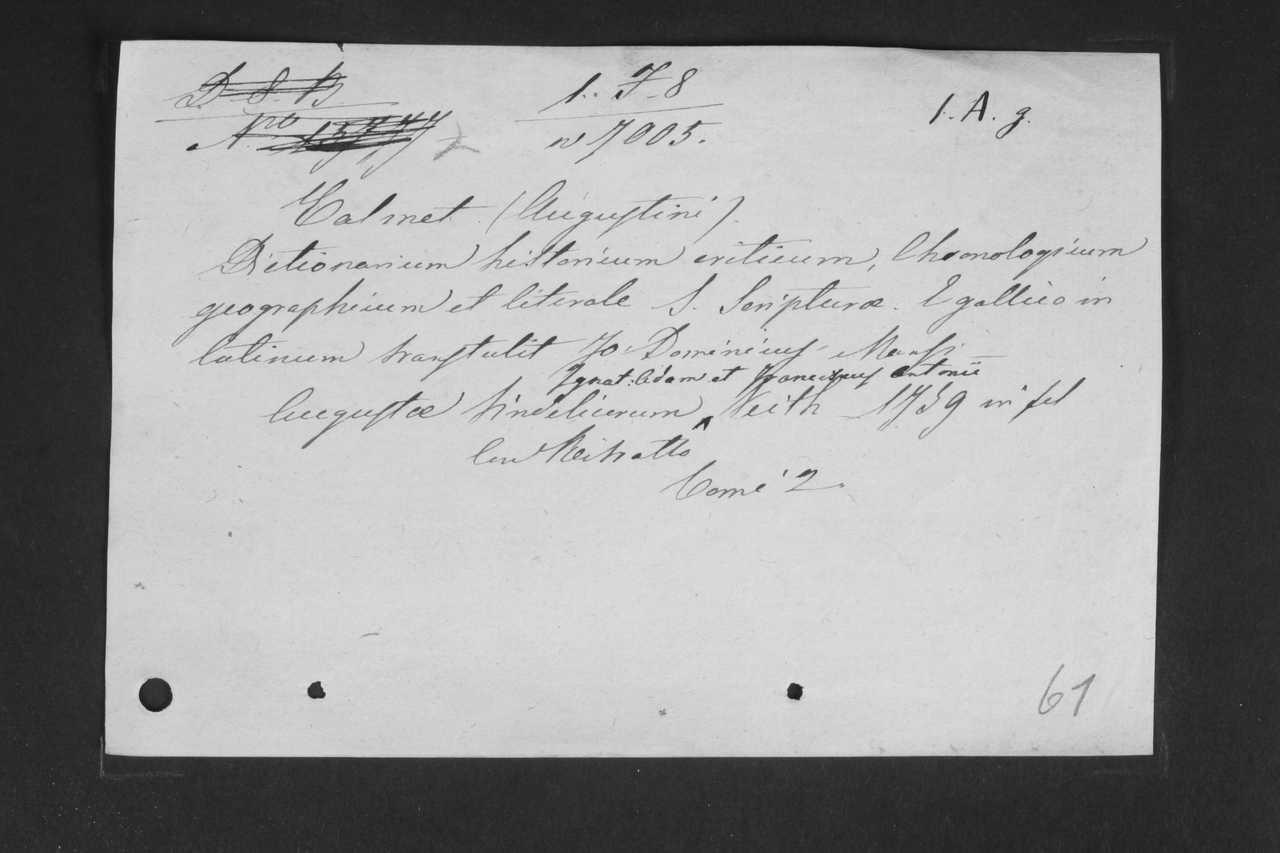 D. 8. B. 1. F-8 1. A. g.
N.ro 15777 n 7005.
Calmet (Augustini).
Dictionarium historicum criticum, Chronologicum
geographicum et literale S. Scripturæ. E gallico in
latinum transtulit Jo: Dominicus Mansi
Ignat: Adam et Franciscus Antonii
Augustæ Vindelicorum Veith 1759 in fol
con Ritratto
Tomi 2.
61